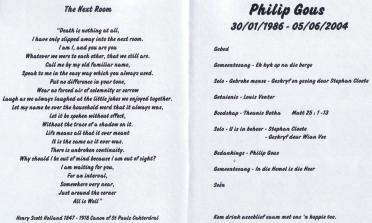 The Next Room
"Death is nothing at all,
I have only slipped away into the next room.
I am I, and you are you
Whatever we were to each other, that we still are.
Call me by my old familiar name,
Speak to me in the easy way which you always used.
Put no difference in your tone,
Wear no forced air of solemnity or sorrow
Laugh as we always laughed at the little jokes we enjoyed together.
Let my name be ever the household word that it always was,
Let it be spoken without effect,
Without the trace of a shadow on it.
Life means all that it ever meant
It is the same as it ever was.
There is unbroken continuity.
Why should I be out of mind because I am out of sight?
I am waiting for you,
For an interval,
Somewhere very near,
Just around the corner
All is Well"
Henry Scott Holland 1847 - 1918 Canon of St Pauls Cathedral
Philip Gous
30/01/1986 - 05/06/2004
Gebed
Gemeentesang - Ek hyk op na die berge
Solo - Gebroke mense - Geskryf en gesing deur Stephan Cloete
Getuienis - Louis Venter
Boodskap - Theunis Botha Matt 25 : 1 -13
Solo - U is in beheer - Stephan Cloete
- Geskryf deur Wian Vos
Bedankings - Philip Gous
Gemeentesang - In die Hemel is die Heer
Seën
Kom drink asseblief saam met ons 'n koppie tee.